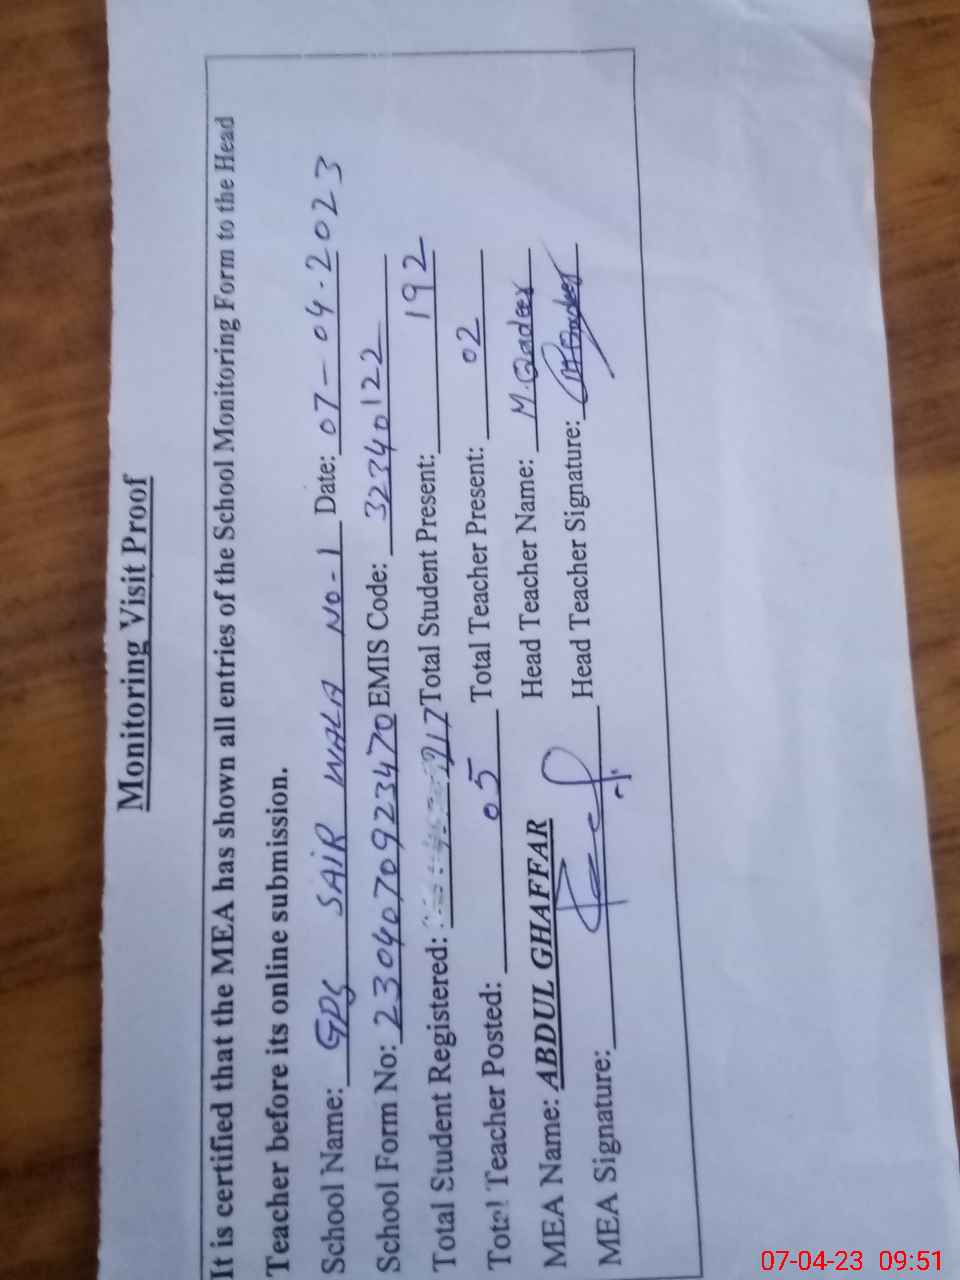 Monitoring Visit Proof
It is certified that the MEA has shown all entries of the School Monitoring Form to the Head
Teacher before its online submission.
School Name: GPS SAIR WALA NO-1 Date: 07-04-2023
School Form No: 2304070923470 EMIS Code: 32340122
Total Student Registered: 217 Total Student Present: 192
Total Teacher Posted: 05 Total Teacher Present: 02
MEA Name: ABDUL GHAFFAR Head Teacher Name: M. Qadeer
MEA Signature: Head Teacher Signature: M Qadeer
07-04-23 09:51